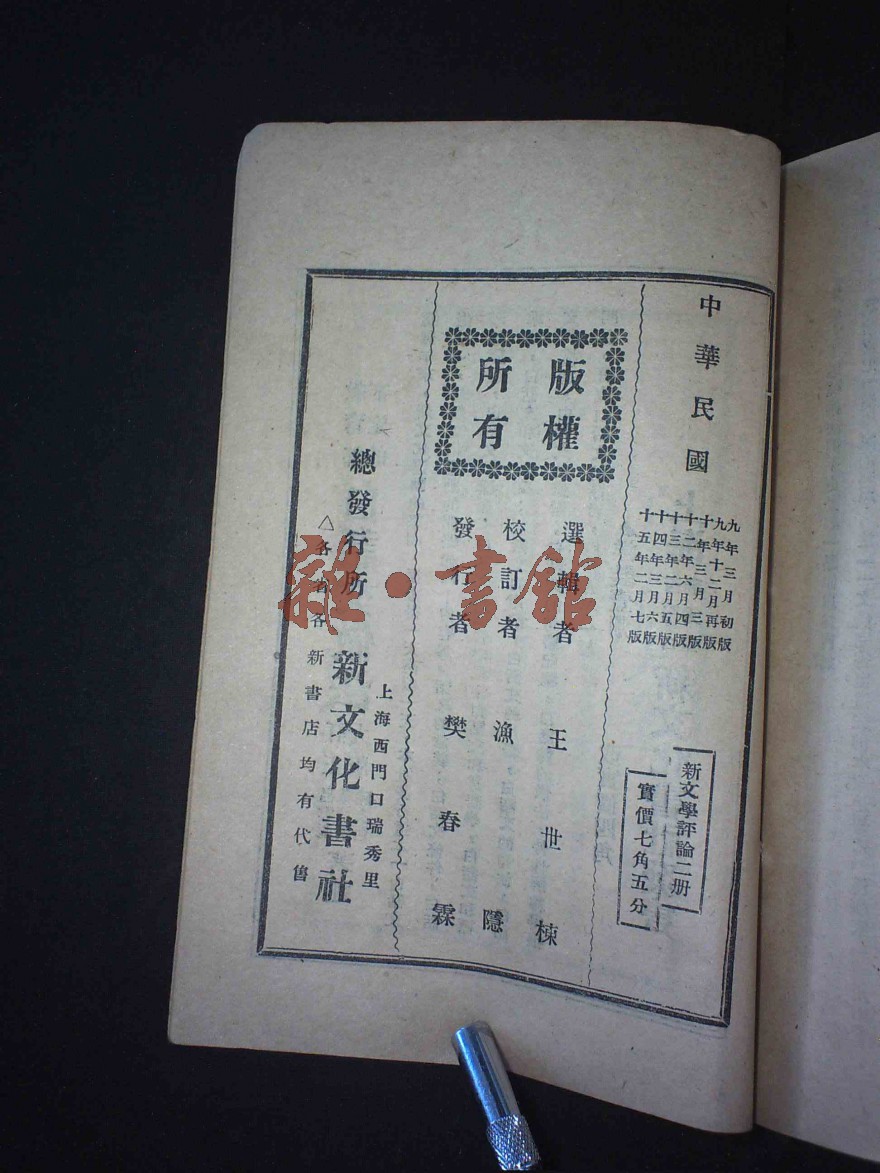 中華民國
九年三月初版
九年十二月再版
十年三月三版
十二年六月四版
十三年二月五版
十四年三月六版
十五年二月七版
新文學評論二册
實價七角五分
版權
所有
選輯者 王世棟
校訂者 漁隱
發行者 樊春霖
總發行所 新文化書社
上海西門口瑞秀里
△各省各新書店均有代售
雜·書館